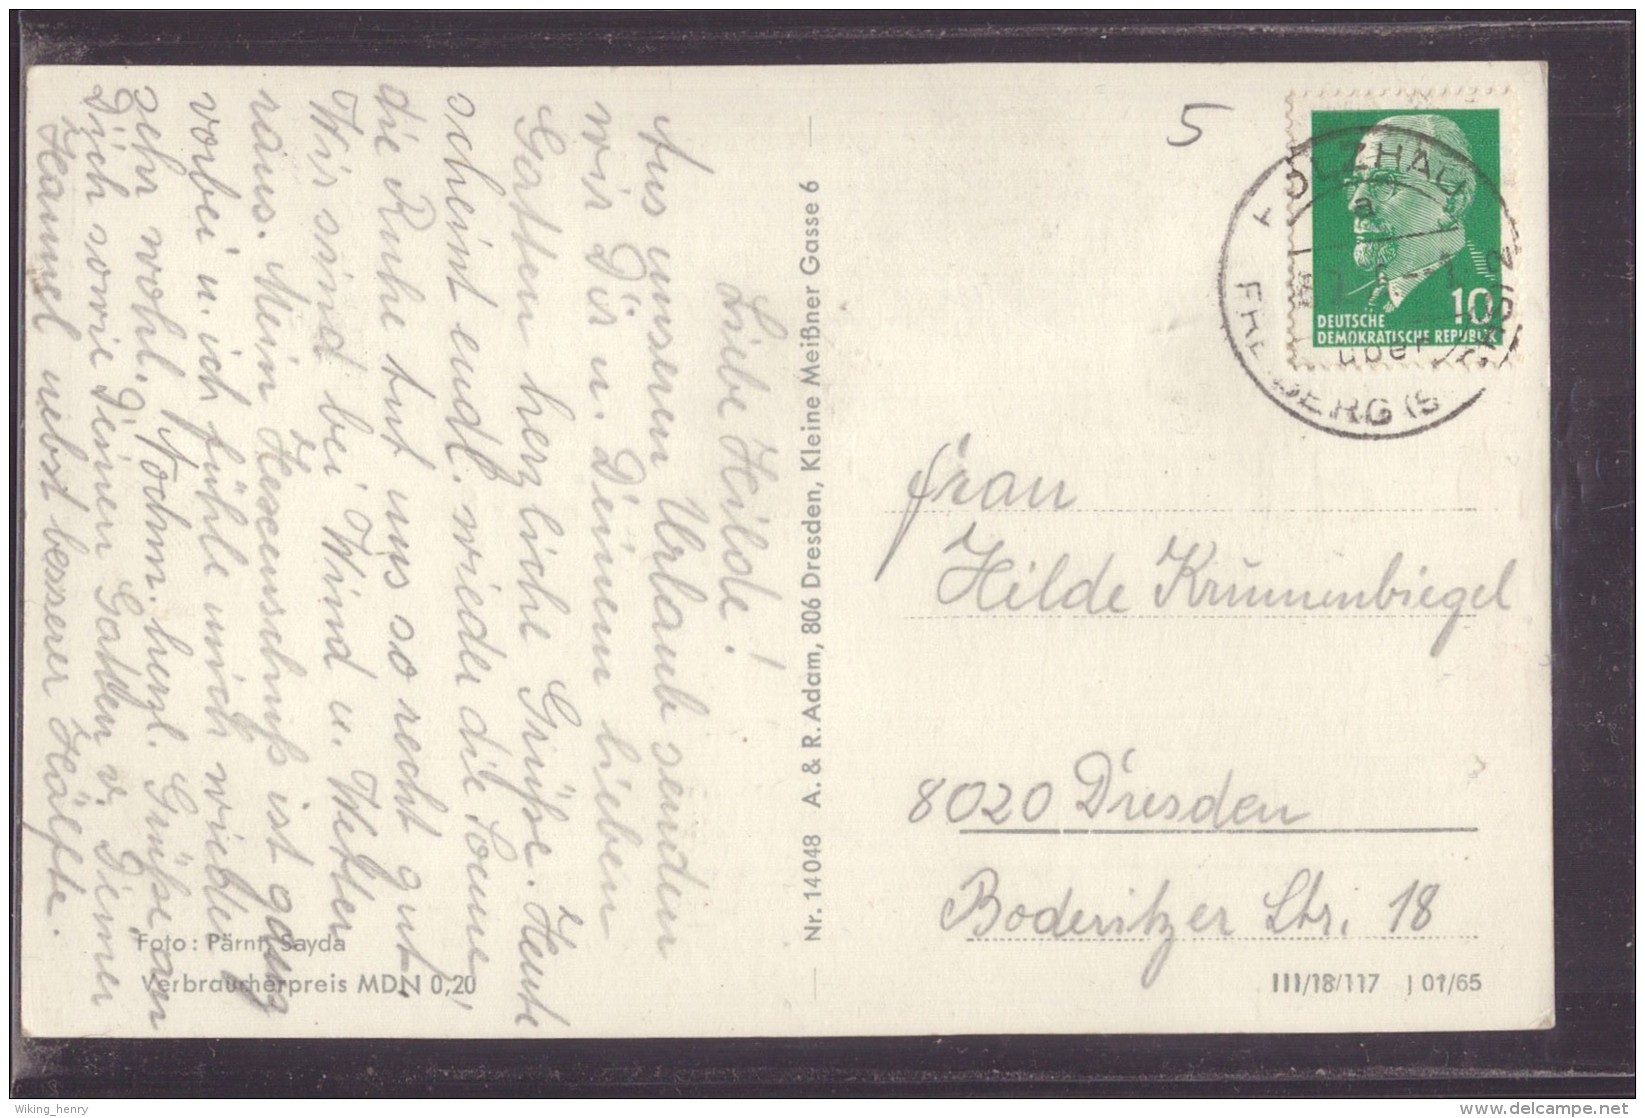 Liebe Hilde!
Aus unserem Urlaub senden
wir Dir u. Deinem lieben
Gatten herzliche Grüße. Heute
scheint endl. wieder die Sonne!
die Ruhe tut uns so recht gut.
Wir sind bei Wind u. Wetter
raus. Mein Hexenschuß ist ganz
vorbei u. ich fühle mich wieder
sehr wohl. Nochm. herzl. Grüße an
Dich sowie Deinen Gatten v. Deiner
Hannel nebst besserer Hälfte.
Foto: Pärnt, Sayda
Verbraucherpreis MDN 0,20
Nr. 14048 A. & R. Adam, 806 Dresden, Kleine Meißner Gasse 6
5
10
DEUTSCHE
DEMOKRATISCHE REPUBLIK
HOLZHAU
a
über
FREIBERG (S
Frau
Hilde Krummenbiegel
8020 Dresden
Boderitzer Str. 18
III/18/117 J 01/65
Wiking_henry
delcampe.net